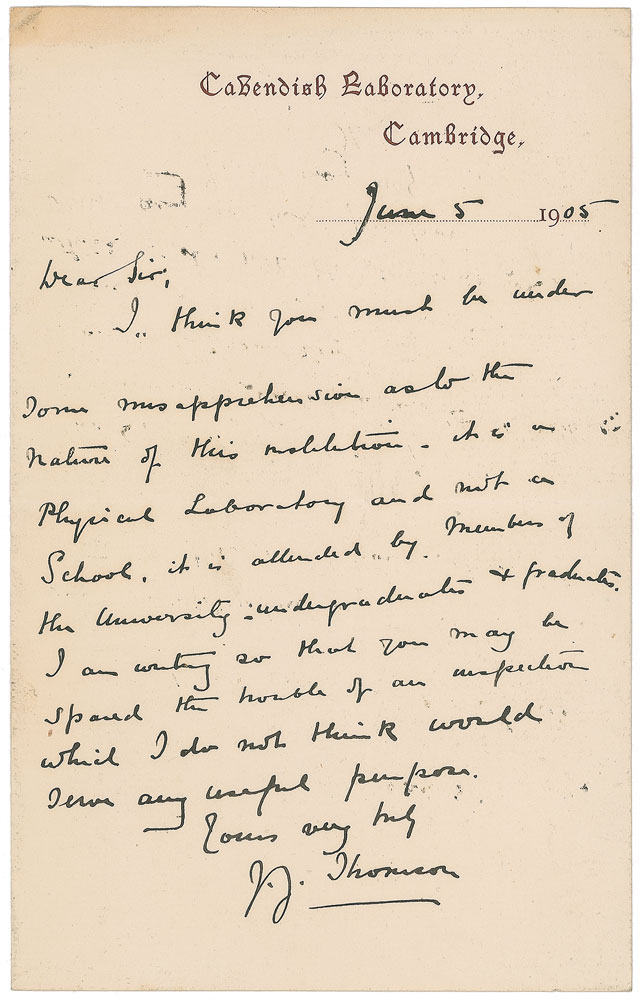 Cavendish Laboratory,
Cambridge.
June 5 1905
Dear Sir,
I think you must be under
some misapprehension as to the
nature of this institution - it is a
Physical Laboratory and not a
School, it is attended by members of
the University - undergraduates & graduates.
I am writing so that you may be
spared the trouble of an inspection
which I do not think would
serve any useful purpose.
Yours very truly
J.J. Thomson